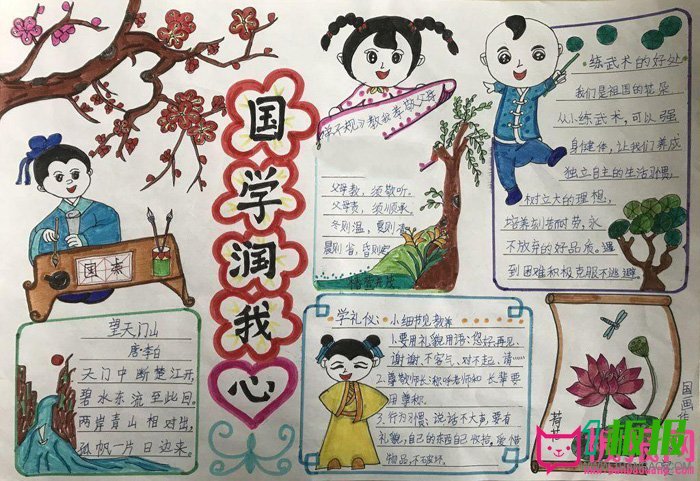 国学润我心
国泰
望天门山
唐 李白
天门中断楚江开,
碧水东流至此回。
两岸青山相对出,
孤帆一片日边来。
《弟子规》教我孝敬父母
父母教,须敬听,
父母责,须顺承。
冬则温,夏则清
晨则省,昏则定
练武术的好处
我们是祖国的花朵
从小练武术,可以强
身健体,让我们养成
独立自主的生活习惯,
树立大的理想,
培养刻苦耐劳,永
不放弃的好品质。遇
到困难积极克服不逃避。
学礼仪:小细节见教养
1.要用礼貌用语:您好、再见、
谢谢、不客气、对不起、请……
2.尊敬师长:称呼老师和长辈要
用尊称。
3.行为习惯:说话不大声,要有
礼貌,自己的东西自己收拾。爱惜
物品,不破坏。
国画作
荷
板报网